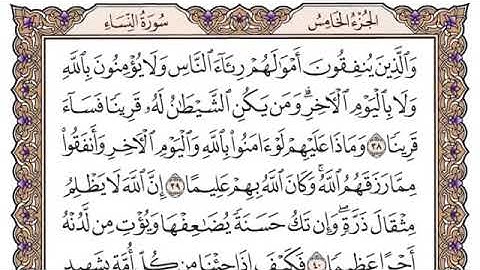 الجُزْءُ الخَامِسُ
سُورَةُ النِّسَاءِ
وَٱلَّذِينَ يُنفِقُونَ أَمْوَٰلَهُمْ رِئَآءَ ٱلنَّاسِ وَلَا يُؤْمِنُونَ بِٱللَّهِ
وَلَا بِٱلْيَوْمِ ٱلْءَاخِرِۗ وَمَن يَكُنِ ٱلشَّيْطَٰنُ لَهُۥ قَرِينًا فَسَآءَ
قَرِينًا ٣٨ وَمَاذَا عَلَيْهِمْ لَوْ ءَامَنُوا۟ بِٱللَّهِ وَٱلْيَوْمِ ٱلْءَاخِرِ وَأَنفَقُوا۟
مِمَّا رَزَقَهُمُ ٱللَّهُۚ وَكَانَ ٱللَّهُ بِهِمْ عَلِيمًا ٣٩ إِنَّ ٱللَّهَ لَا يَظْلِمُ
مِثْقَالَ ذَرَّةٍۖ وَإِن تَكُ حَسَنَةً يُضَٰعِفْهَا وَيُؤْتِ مِن لَّدُنْهُ
أَجْرًا عَظِيمًا ٤٠ فَكَيْفَ إِذَا جِئْنَا مِن كُلِّ أُمَّةٍۭ بِشَهِيدٍ